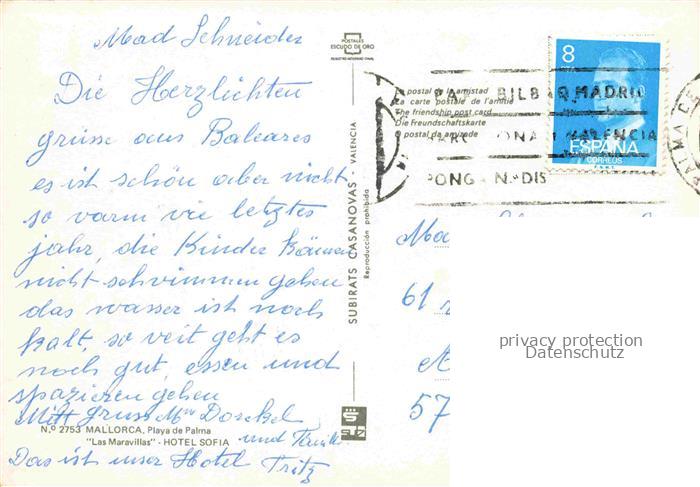 Mad Schneider
Die Herzlichten
grüsse aus Baleares
es ist schön aber nicht
so varm vie letztes
jahr, die Kinder können
nicht schvimmen gehen
das wasser ist noch
kalt, so veit geht es
noch gut, essen und
spazieren gehen
Mitt Gruss Dorckel
und Familie
Das ist unser Hotel Fritz
N.º 2753 MALLORCA, Playa de Palma
"Las Maravillas" - HOTEL SOFIA
POSTALES
ESCUDO DE ORO
SUBIRATS CASANOVAS - VALENCIA
Reproducción prohibida
La postal de la amistad
La carte postale de l'amitié
The friendship post card
Die Freundschaftskarte
O postal da amizade
BILBAO MADRID
VALENCIA
PALMA
8
ESPAÑA
CORREOS
61
57
privacy protection
Datenschutz